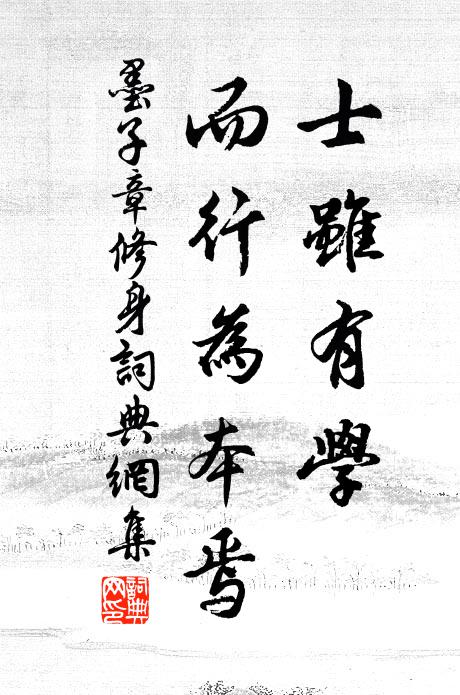 士雖有學
而行為本焉
墨子章修身詞典網集
詞典網印